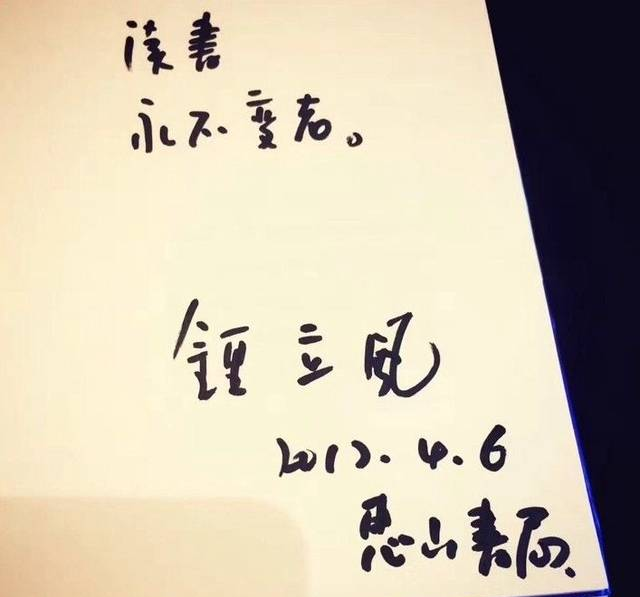 读書
永不变老。
鍾立風
2017.4.6
山書局